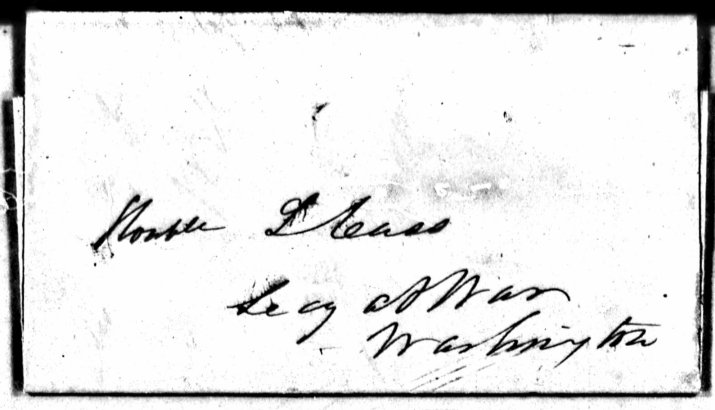 Honble L Cass
Secy at War
Washington